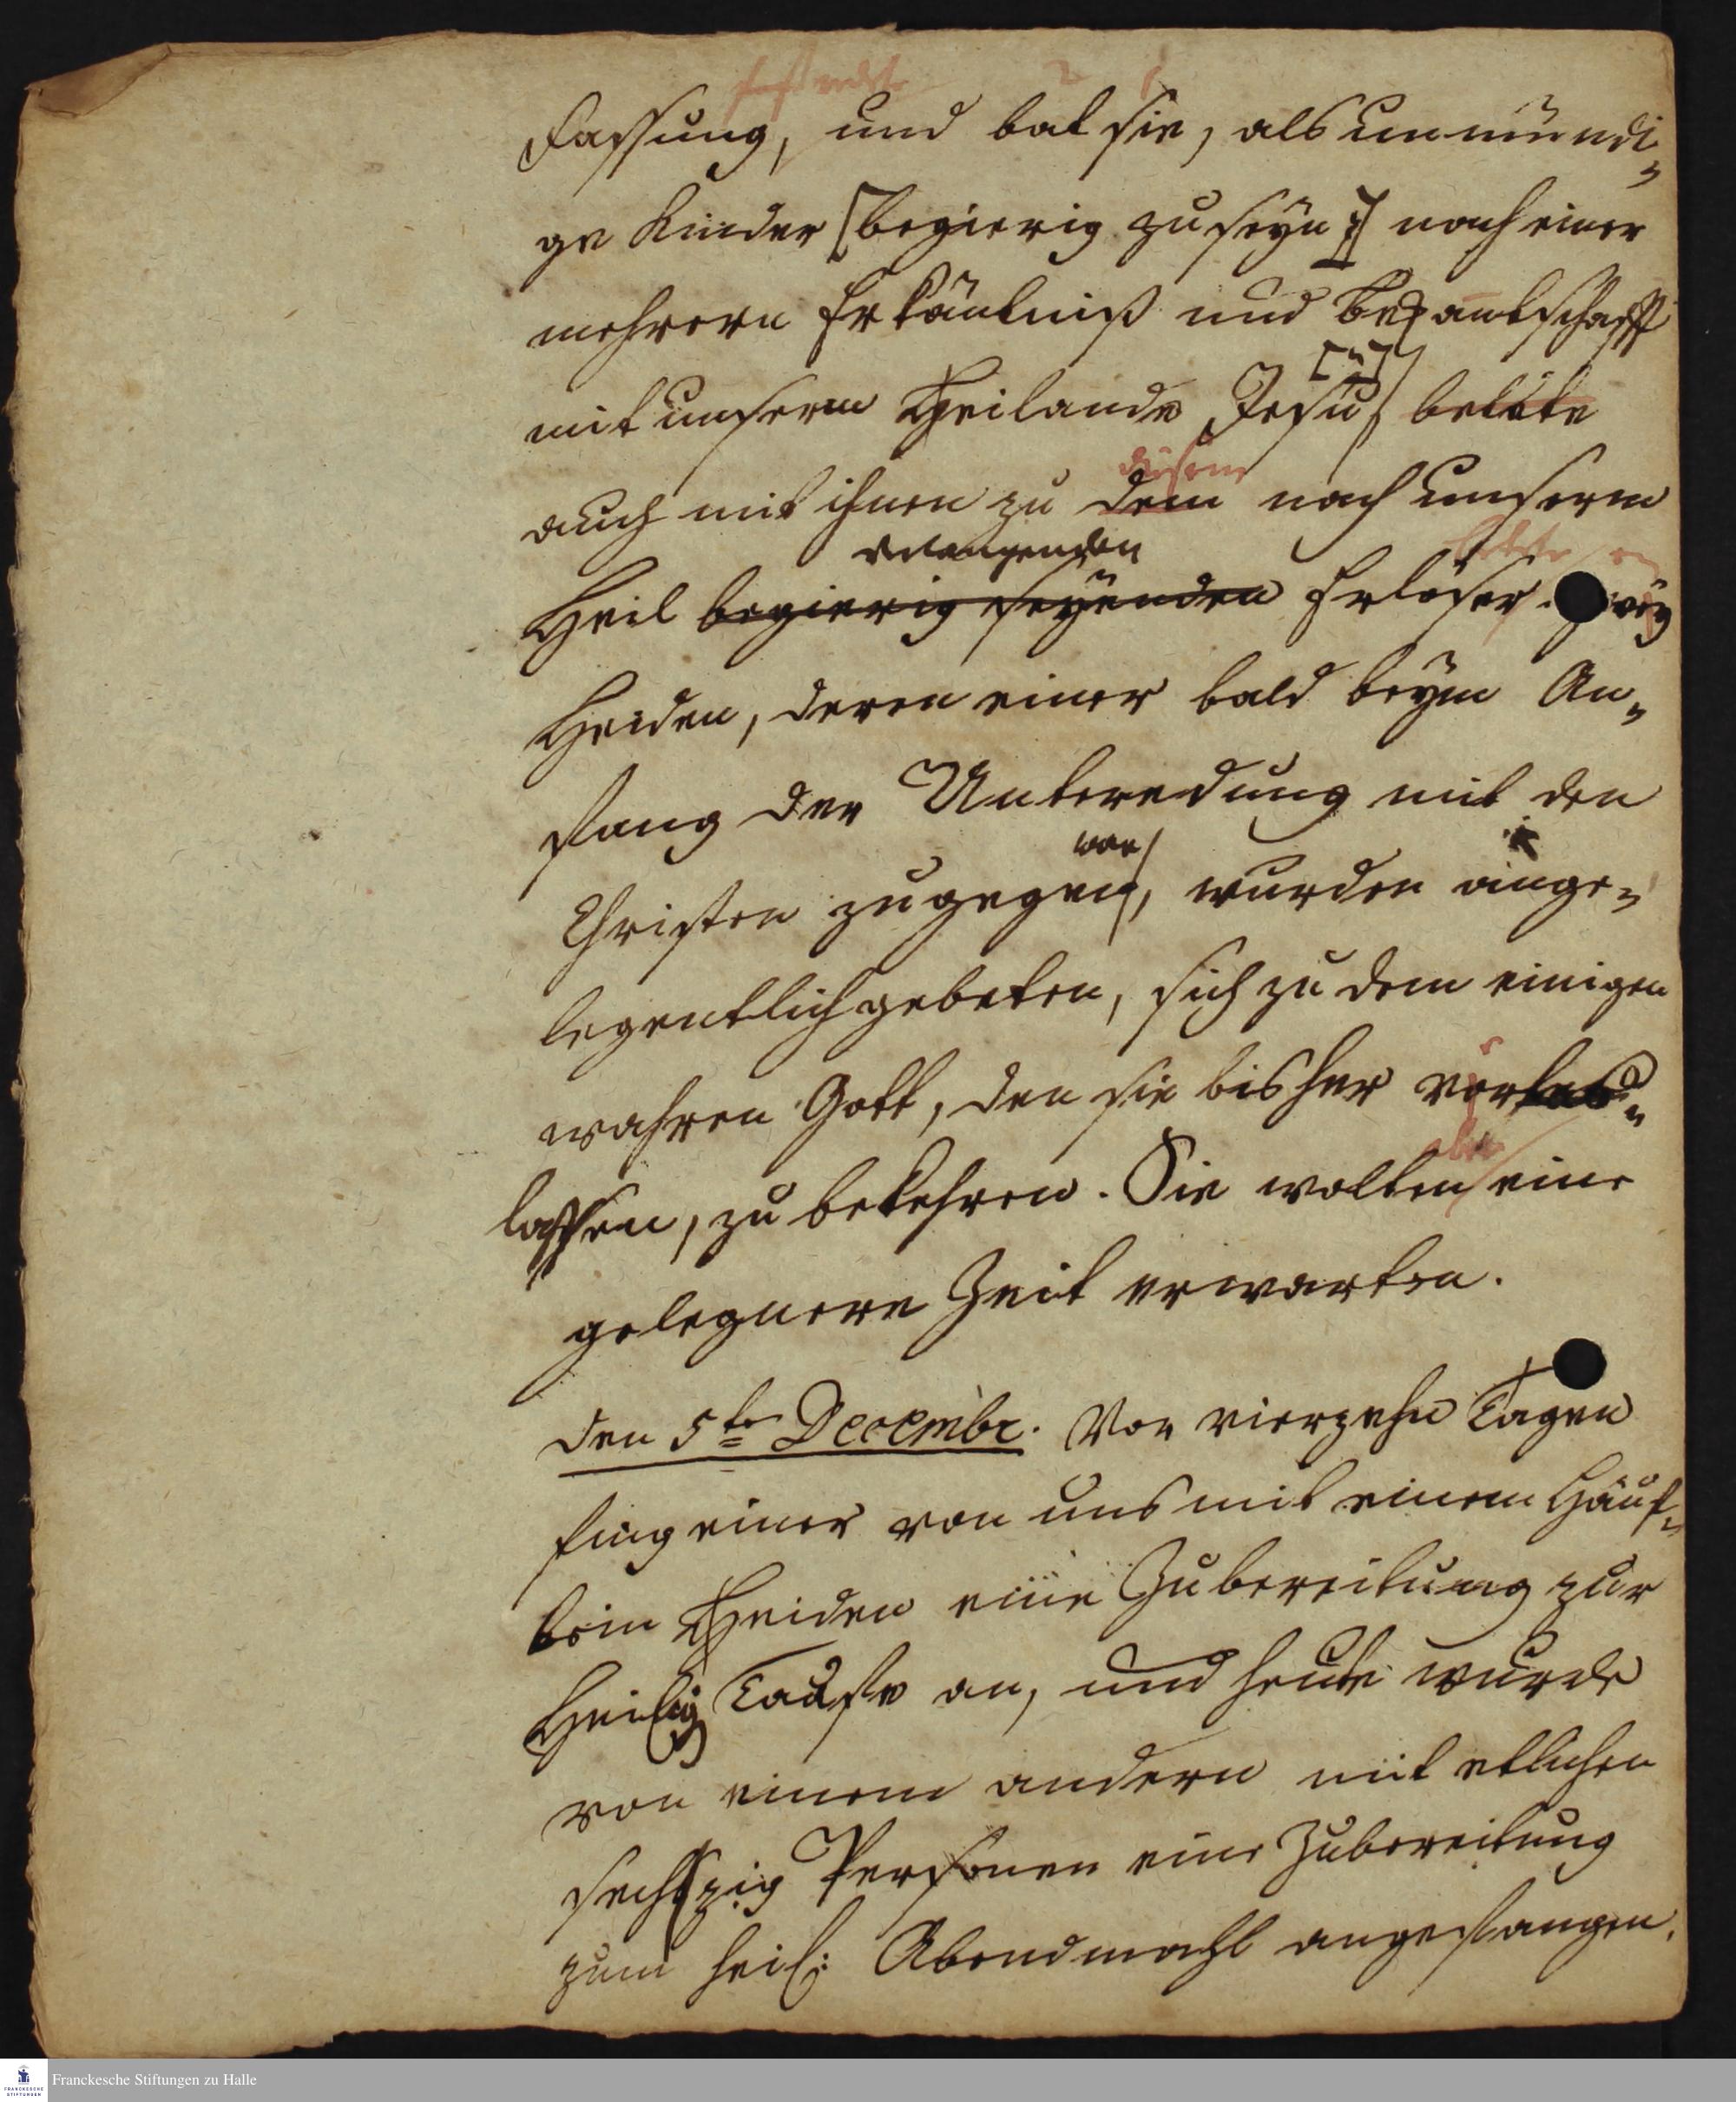 Fassung, und bat sie, als unmündi-
ge Kinder [begierig zu seyn] nach einer
mehrern Erkäntniß und Bekantschafft
mit unserm Heilande Jesu, betete
diesem
auch mit ihnen zu dem nach unserm
verlangenden
Heil begierig seyenden Erlöser. Zwey
Heiden, deren einer bald beym An-
fang der Unteredung mit den
war
Christen zugegen, wurden ange-
legentlich gebeten, sich zu dem einigen
wahren Gott, den sie bisher ver-
aber
lassen, zu bekehren. Sie wolten eine
gelegnere Zeit erwarten.
Den 5te Decembr. Vor vierzehn Tagen
fing einer von uns mit einem Häuf-
lein Heiden eine Zubereitung zur
Heilig Tauffe an, und heute wurde
von einem andern mit etlichen
sechszig Personen eine Zubereitung
zum heil: Abendmahl angefangen.
Franckesche Stiftungen zu Halle
FRANCKESCHE
STIFTUNGEN